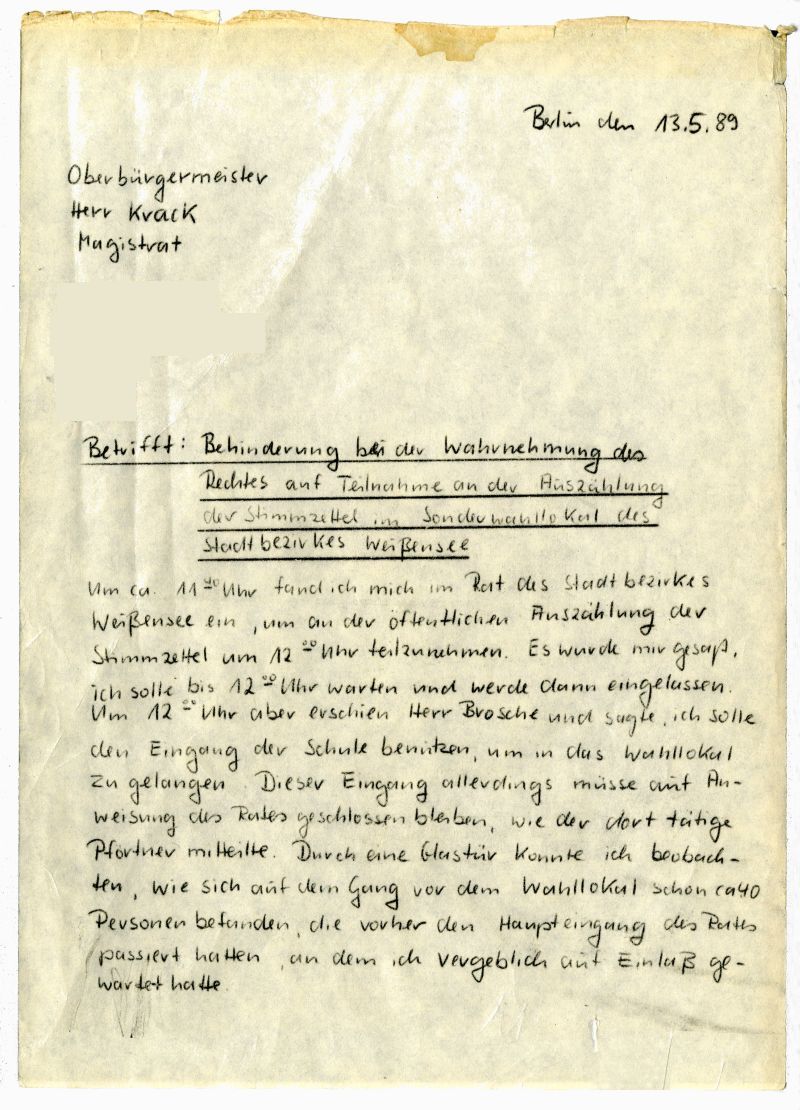 Berlin den 13.5.89
Oberbürgermeister
Herr Krack
Magistrat
Betrifft: Behinderung bei der Wahrnehmung des
Rechtes auf Teilnahme an der Auszählung
der Stimmzettel im Sonderwahllokal des
Stadtbezirkes Weißensee
Um ca. 11⁴⁰ Uhr fand ich mich im Rat des Stadtbezirkes
Weißensee ein, um an der öffentlichen Auszählung der
Stimmzettel um 12⁰⁰ Uhr teilzunehmen. Es wurde mir gesagt,
ich solle bis 12⁰⁰ Uhr warten und werde dann eingelassen.
Um 12⁰⁰ Uhr aber erschien Herr Brosche und sagte, ich solle
den Eingang der Schule benützen, um in das Wahllokal
zu gelangen. Dieser Eingang allerdings müsse auf An-
weisung des Rates geschlossen bleiben, wie der dort tätige
Pförtner mitteilte. Durch eine Glastür konnte ich beobach-
ten, wie sich auf dem Gang vor dem Wahllokal schon ca 40
Personen befanden, die vorher den Haupteingang des Rates
passiert hatten, an dem ich vergeblich auf Einlaß ge-
wartet hatte.